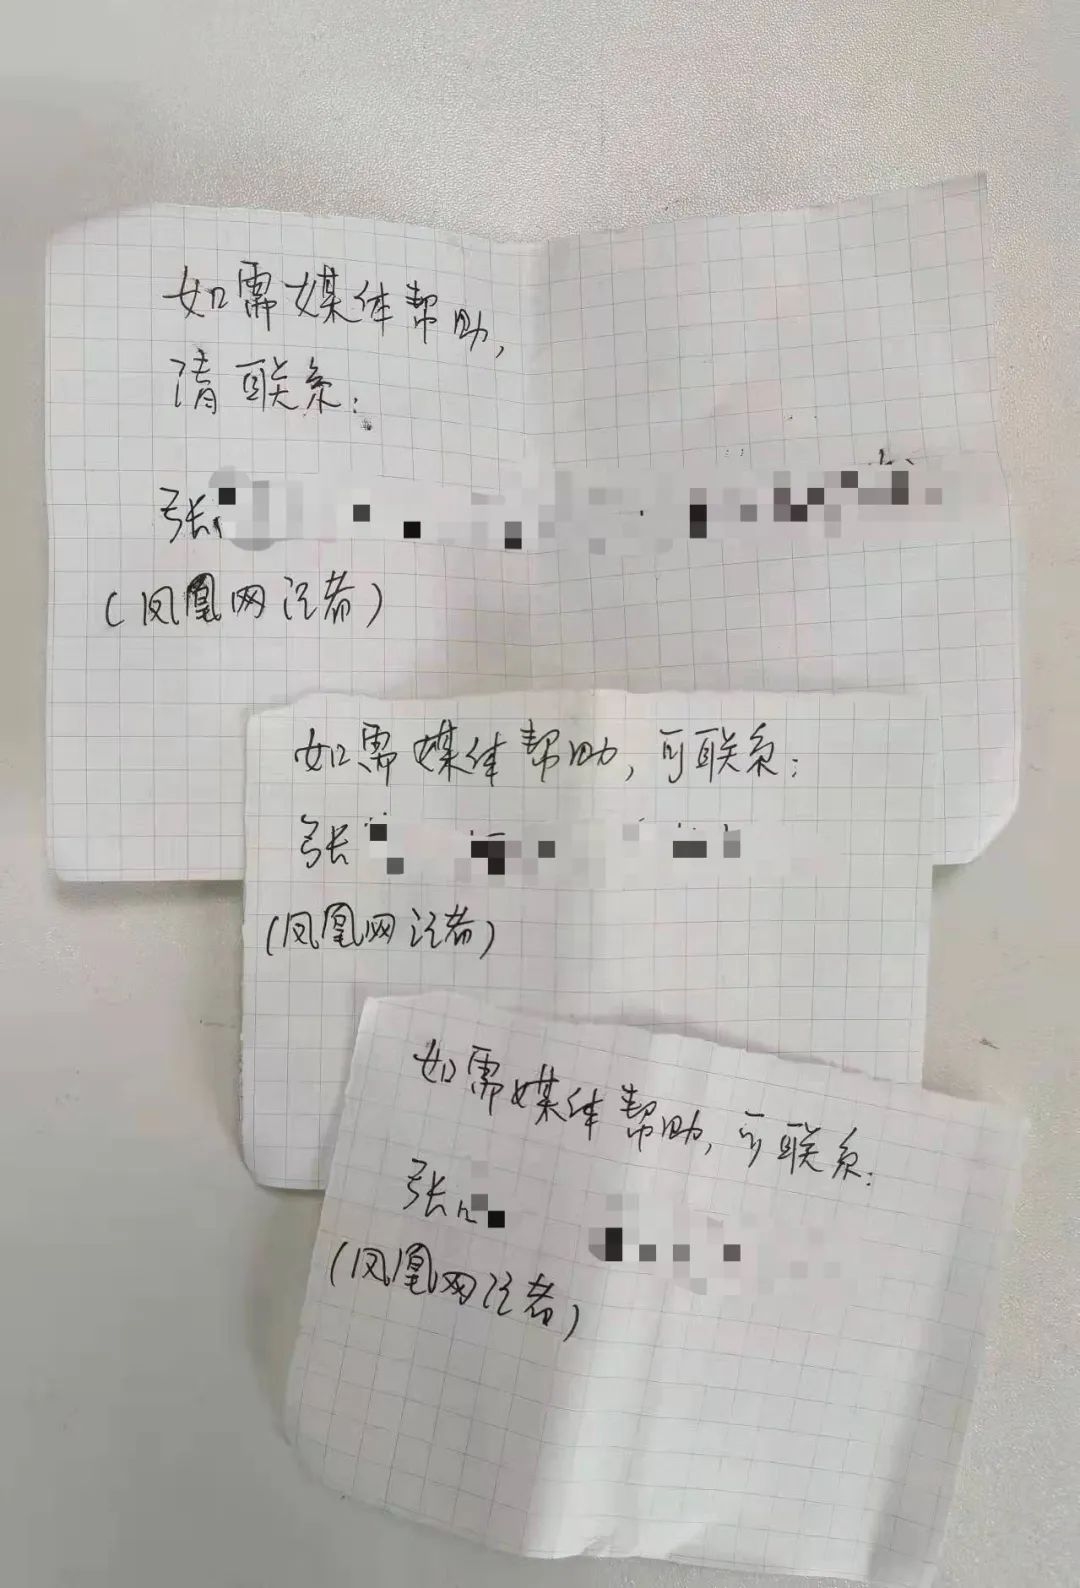 如需媒体帮助,
请联系:
张
(凤凰网记者)
如需媒体帮助,可联系:
张
(凤凰网记者)
如需媒体帮助,可联系:
张
(凤凰网记者)